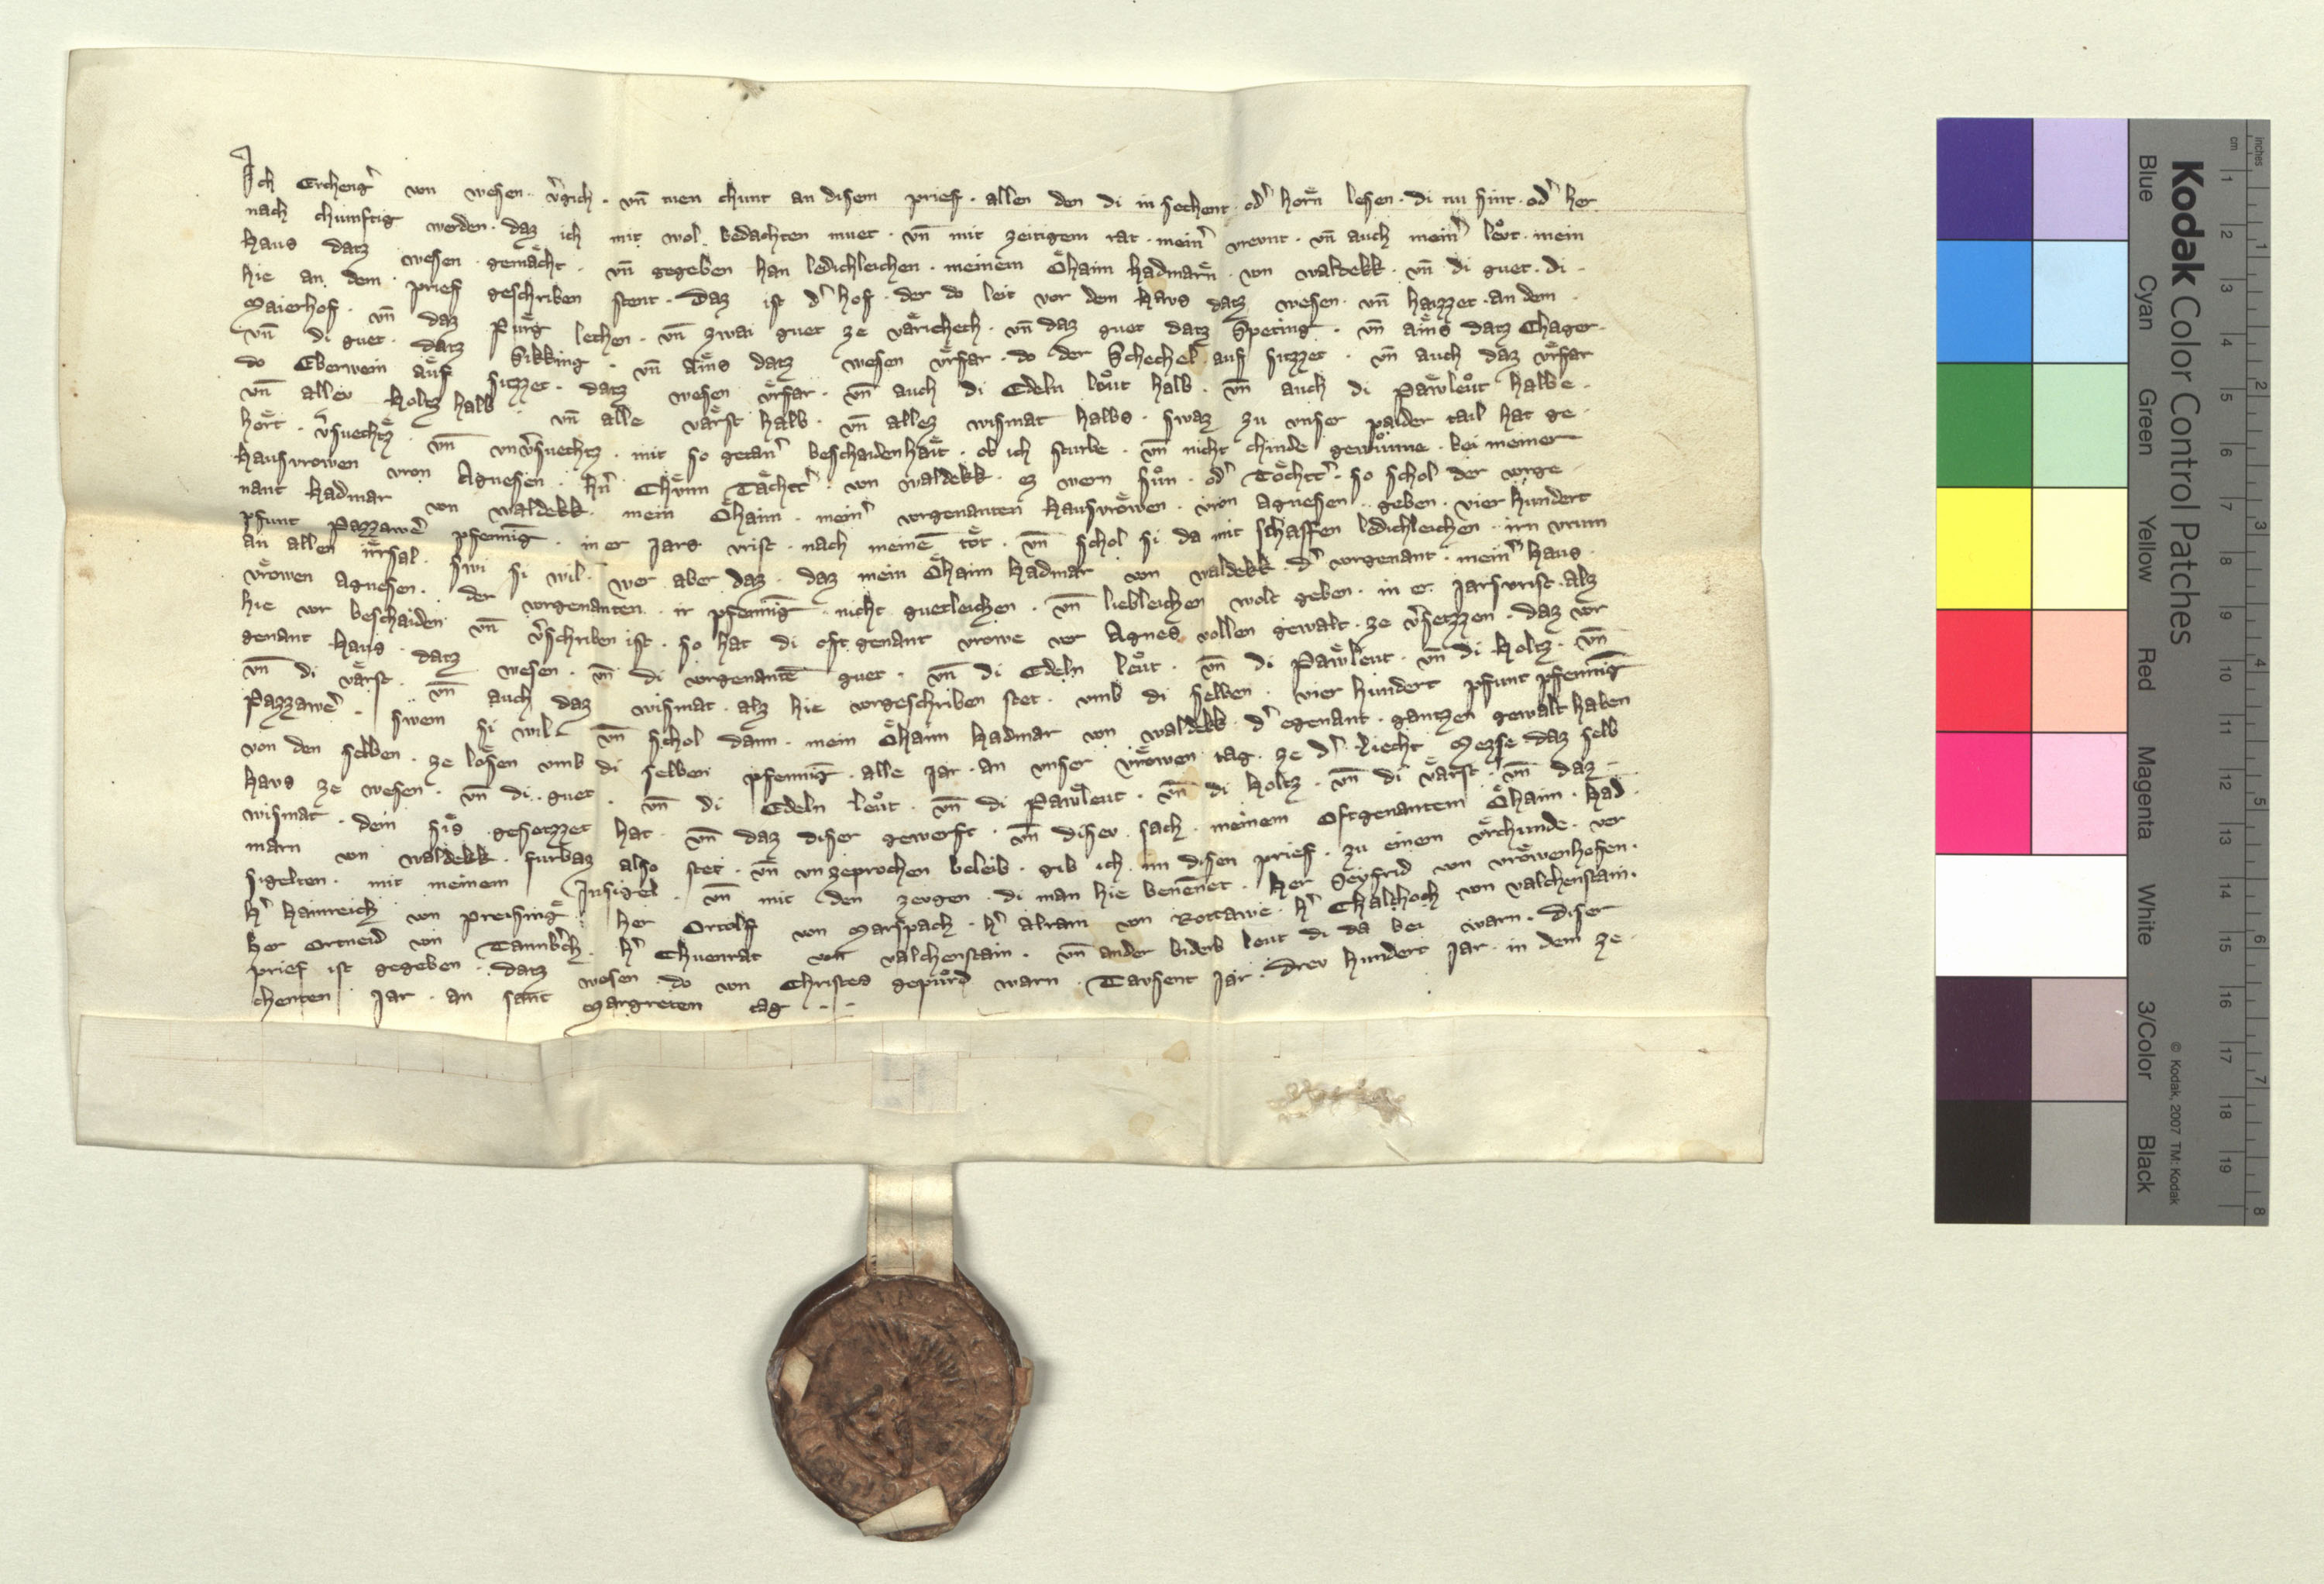 Ich Erchengͬ von wesen · vͬgich · vn̄ tuen chunt an disem prief · allen den di in sechent odͬ hoͤrn lesen · di nu sint · odͬ her
nach chumftig werden · daz ich mit wol bedachten muet · vn̄ mit zeitigem rat · meinͬ vreunt · vn̄ auch meinͬ leͮt · mein
haus datz wesen · gemaͤcht · vn̄ gegeben han ledichleichen · meinem Oͤhaim hadmarn · von waldekk · vn̄ di guet · di ·
hie an dem · prief geschriben stent · Daz ist dͬ hof · der do leit vor dem haus datz wesen · vn̄ haizzet · an dem ·
Maierhof · vn̄ daz Puͤrg lechen · vn̄ zwai guet ze vaͤricheth · vn̄ daz guet datz Speting · vn̄ aͤins datz Chager ·
vn̄ di guet · datz Sikking · vn̄ aͤins datz wesen vͤrfar · do der Schechel auf sitzzet · vn̄ auch daz vͤrfar
do Eberwein aͤuf sitzzet · datz wesen vͤrfar · vn̄ auch di Edeln leͮut halb · vn̄ auch di Paͤwleut halbe ·
vn̄ allev holtz halb · vn̄ alle vaͤrst halb · vn̄ allez wismat halbs · swaz zu unser paider tail hat ge ·
hoͤrt · vͬsuechtz · vn̄ vnvͬsuechtz · mit so getanͬ beschaidenhaͤit · ob ich sturbe · vn̄ nicht chinde gewuͦnne · bei meiner
hausvrowen vron Agnesen · hͬn Chuͤnn Taͤchtͬ · von waldekk · ez wern suͦn · odͬ Toͤchtͬ · so schol der vorge
nant hadmar von waldekk · mein Oͤhaim · meinͬ vorgenanten hausvroͤwen · vron agnesen · geben · vier hundert
pfunt Pazzawͬ pfennīg · in er Jars vrist · nach meinē toͤt · vn̄ schol si da mit schaffen ledichleichen · irn vrum
an allen irͤsal · swi si wil · wer aber daz · daz mein Oͤhaim hadmar von waldekk · dͬ vorgenant · meinͬ haus ·
vroͤwen Agnesen · der vorgenanten · ir pfennīg · nicht guetleichen · vn̄ liebleichen wolt geben · in er Jarsvrist · alz
hie vor beschaiden vn̄ vͬschriben ist · so hat di oft genant vrowe ver Agnes vollen gewalt · ze vͬsetzzen · daz vor
genant haus · datz wesen · vn̄ di vorgenantē guet · vn̄ di Edeln leͮut · vn̄ di Paͤwleut · vn̄ di holtz · vn̄
vn̄ di vaͤrst · vn̄ auch daz wismat · alz hie vorgeschriben stet · vmb di selben · vier hundert pfunt pfennīg
Pazzawͬ · swem si wil · vn̄ schol dann · mein Oͤhaim hadmar von waldekk · dͬ egenant · gantzen gewalt haben
von den selben · ze loͤsen vmb di selben pfennīg · alle Jar · an unser vroͤwen tag · ze dͬ Liecht Mezse daz selb
haus ze wesen · vn̄ di · guet · vn̄ di Edeln leͮut · vn̄ di Paͤwleut · vn̄ di holtz · vn̄ di vaͤrst · vn̄ daz
wismat · dem siͤs gesetzzet hat · vn̄ daz diser gewerft · vn̄ disev sach · meinem Oftgenantem Oͤhaim · had
marn von waldekk · furbaz also stet · vn̄ vnzeprochen beleib · gib ich im disen prief · zu einem vͤrchunde · ver
sigelten · mit meinem Insigel · vn̄ mit den zevgen · di man hie benēnet · her Seyfrid von vroͤwenhofen ·
hͬ hainreich von preising · her Ortolf von Marspach · hͬ alram von Rottawe · hͬ Chalhoch von valchenstain ·
her Ortneid von Tannbͬch · hͬ Chuenrat von valchenstain · vn̄ ander biderb leut di da bei warn · diser
prief ist gegeben · datz wesen · do von Christes gepuͦrd warn · Tausent Jar · drev hundert Jar · in dem ze ·
chenten Jar · an sant Margreten tag
Kodak Color Control Patches
© Kodak, 2007 TM: Kodak
Blue Cyan Green Yellow Red Magenta White 3/Color Black
inches 1 2 3 4 5 6 7 8
cm 1 2 3 4 5 6 7 8 9 10 11 12 13 14 15 16 17 18 19